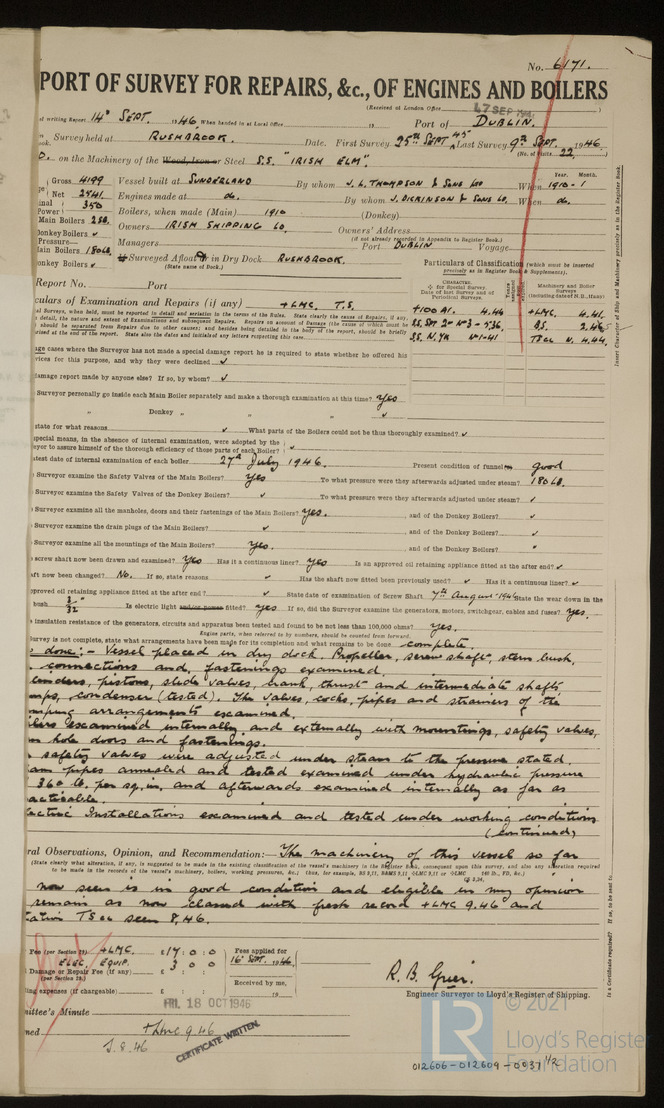 No. 6171.
PORT OF SURVEY FOR REPAIRS, &c., OF ENGINES AND BOILERS
(Received at London Office 17 SEP 1946)
of writing Report 14th SEPT. 1946. When handed in at Local Office 19 Port of DUBLIN.
Survey held at RUSHBROOK. Date. First Survey 25th SEPT 45 Last Survey 9th SEPT. 1946.
(No. of Visits 22.)
on the Machinery of the Wood, Iron or Steel S.S. "IRISH ELM".
Gross 4199 Vessel built at SUNDERLAND By whom J. L. THOMPSON & SONS LTD When 1910-1
Year. Month.
Net 2941. Engines made at do. By whom J. DICKINSON & SONS LD. When do.
350 Boilers, when made (Main) 1910 (Donkey)
Power
Main Boilers 250. Owners IRISH SHIPPING LD. Owners' Address
(if not already recorded in Appendix to Register Book.)
Donkey Boilers ✓ Managers Port DUBLIN Voyage
Pressure—
Main Boilers 180 lb. Surveyed Afloat or in Dry Dock RUSHBROOK.
(State name of Dock.)
Donkey Boilers ✓
Particulars of Classification (which must be inserted precisely as in Register Book & Supplements).
Report No. Port
CHARACTER. * for Special Survey. Date of last Survey and of Periodical Surveys.
Machinery and Boiler Surveys (including dates of N.B., if any)
culars of Examination and Repairs (if any) +LMC. T.S.
+100 A1. 4.44 +LMC. 4.41.
B.S. 2.45
S.S. N.Yk No1-41 TS CL N. 4.44.
age cases where the Surveyor has not made a special damage report he is required to state whether he offered his
vices for this purpose, and why they were declined ✓
damage report made by anyone else? If so, by whom? ✓
Surveyor personally go inside each Main Boiler separately and make a thorough examination at this time? Yes
" Donkey " " " ✓
state for what reasons ✓ What parts of the Boilers could not be thus thoroughly examined? ✓
special means, in the absence of internal examination, were adopted by the
eyor to assure himself of the thorough efficiency of those parts of each Boiler? ✓
atest date of internal examination of each boiler 27th July 1946. Present condition of funnel good
Surveyor examine the Safety Valves of the Main Boilers? Yes To what pressure were they afterwards adjusted under steam? 180 lb.
Surveyor examine the Safety Valves of the Donkey Boilers? ✓ To what pressure were they afterwards adjusted under steam? ✓
Surveyor examine all the manholes, doors and their fastenings of the Main Boilers? Yes. and of the Donkey Boilers? ✓
Surveyor examine the drain plugs of the Main Boilers? ✓ and of the Donkey Boilers? ✓
Surveyor examine all the mountings of the Main Boilers? Yes. and of the Donkey Boilers? "
screw shaft now been drawn and examined? Yes Has it a continuous liner? Yes Is an approved oil retaining appliance fitted at the after end? ✓
aft now been changed? No. If so, state reasons ✓ Has the shaft now fitted been previously used? ✓ Has it a continuous liner? ✓
approved oil retaining appliance fitted at the after end? ✓ State date of examination of Screw Shaft 7th August 1946 State the wear down in the
bush 3/32" Is electric light and/or power fitted? Yes If so, did the Surveyor examine the generators, motors, switchgear, cables and fuses? Yes.
insulation resistance of the generators, circuits and apparatus been tested and found to be not less than 100,000 ohms? Yes.
Engine parts, when referred to by numbers, should be counted from forward.
survey is not complete, state what arrangements have been made for its completion and what remains to be done complete.
done:- Vessel placed in dry dock. Propeller, screw shaft, stern bush,
connections and fastenings examined.
linders, pistons, slide valves, crank, thrust and intermediate shafts
mps, condenser (tested). The valves, cocks, pipes and strainers of the
umping arrangements examined.
ilers examined internally and externally with mountings, safety valves,
n hole doors and fastenings.
safety valves were adjusted under steam to the pressure stated.
am pipes annealed and tested examined under hydraulic pressure
360 lb. per sq. in. and afterwards examined internally as far as
acticable.
lectric Installations examined and tested under working conditions
(continued)
ral Observations, Opinion, and Recommendation:— The machinery of this vessel so far
(State clearly what alteration, if any, is suggested to be made in the existing classification of the vessel's machinery in the Register Book, consequent upon this survey, and also any alteration required
to be made in the records of the vessel's machinery, boilers, working pressures, &c.; thus, for example,
now seen is in good condition and eligible in my opinion
remain as now classed with fresh record +LMC 9.46 and
TS CL seen 8.46.
Fee (per Section 29) +LMC. £ 17 : 0 : 0 Fees applied for
ELEC. EQUIP. 3 : 0 : 0 16th SEPT. 1946.
Damage or Repair Fee (if any) £ : :
(per Section 29.)
Received by me,
lling expenses (if chargeable) £ : : 19
R. B. Grier.
Engineer Surveyor to Lloyd's Register of Shipping.
FRI. 18 OCT 1946
mittee's Minute
ned + LMC 9.46
S. 8.46
CERTIFICATE WRITTEN.
Insert Character of Ship and Machinery precisely as in the Register Book.
Is a Certificate required? If so, to be sent to
© 2021
LR
Lloyd's Register
Foundation
012606-012609-0037 1/2